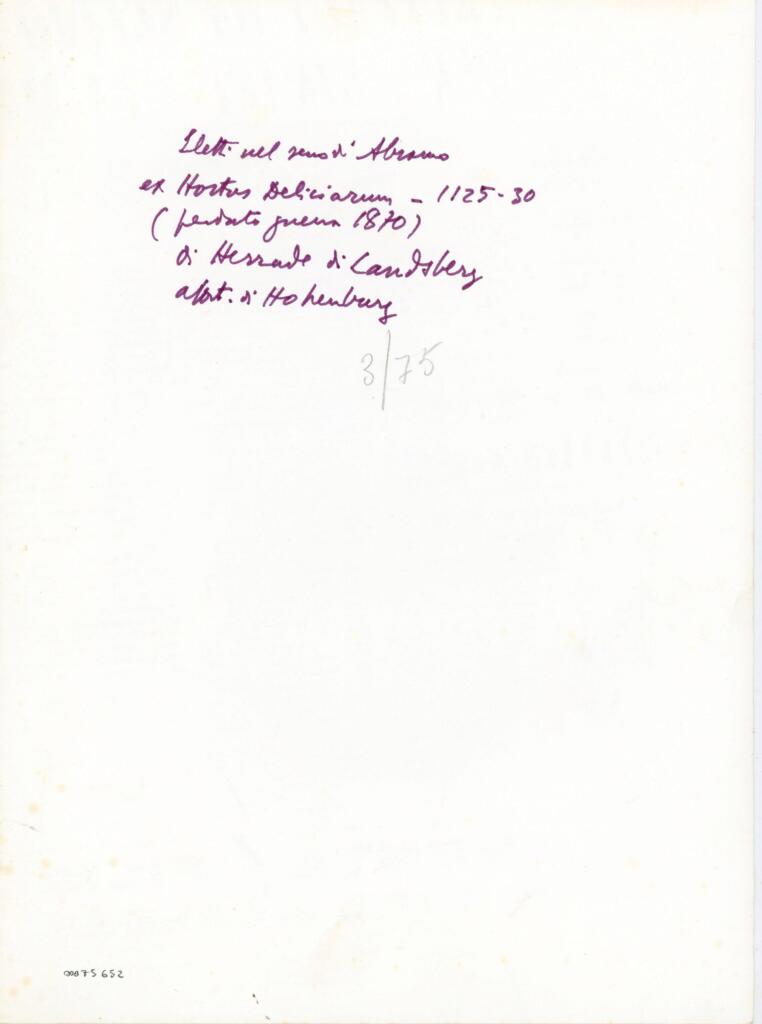 Eletti nel seno d' Abramo
ex Hortus Deliciarum - 1125-30
(perduto guerra 1870)
di Herrade di Landsberg
abst. di Hohenburg
3/75
00075652